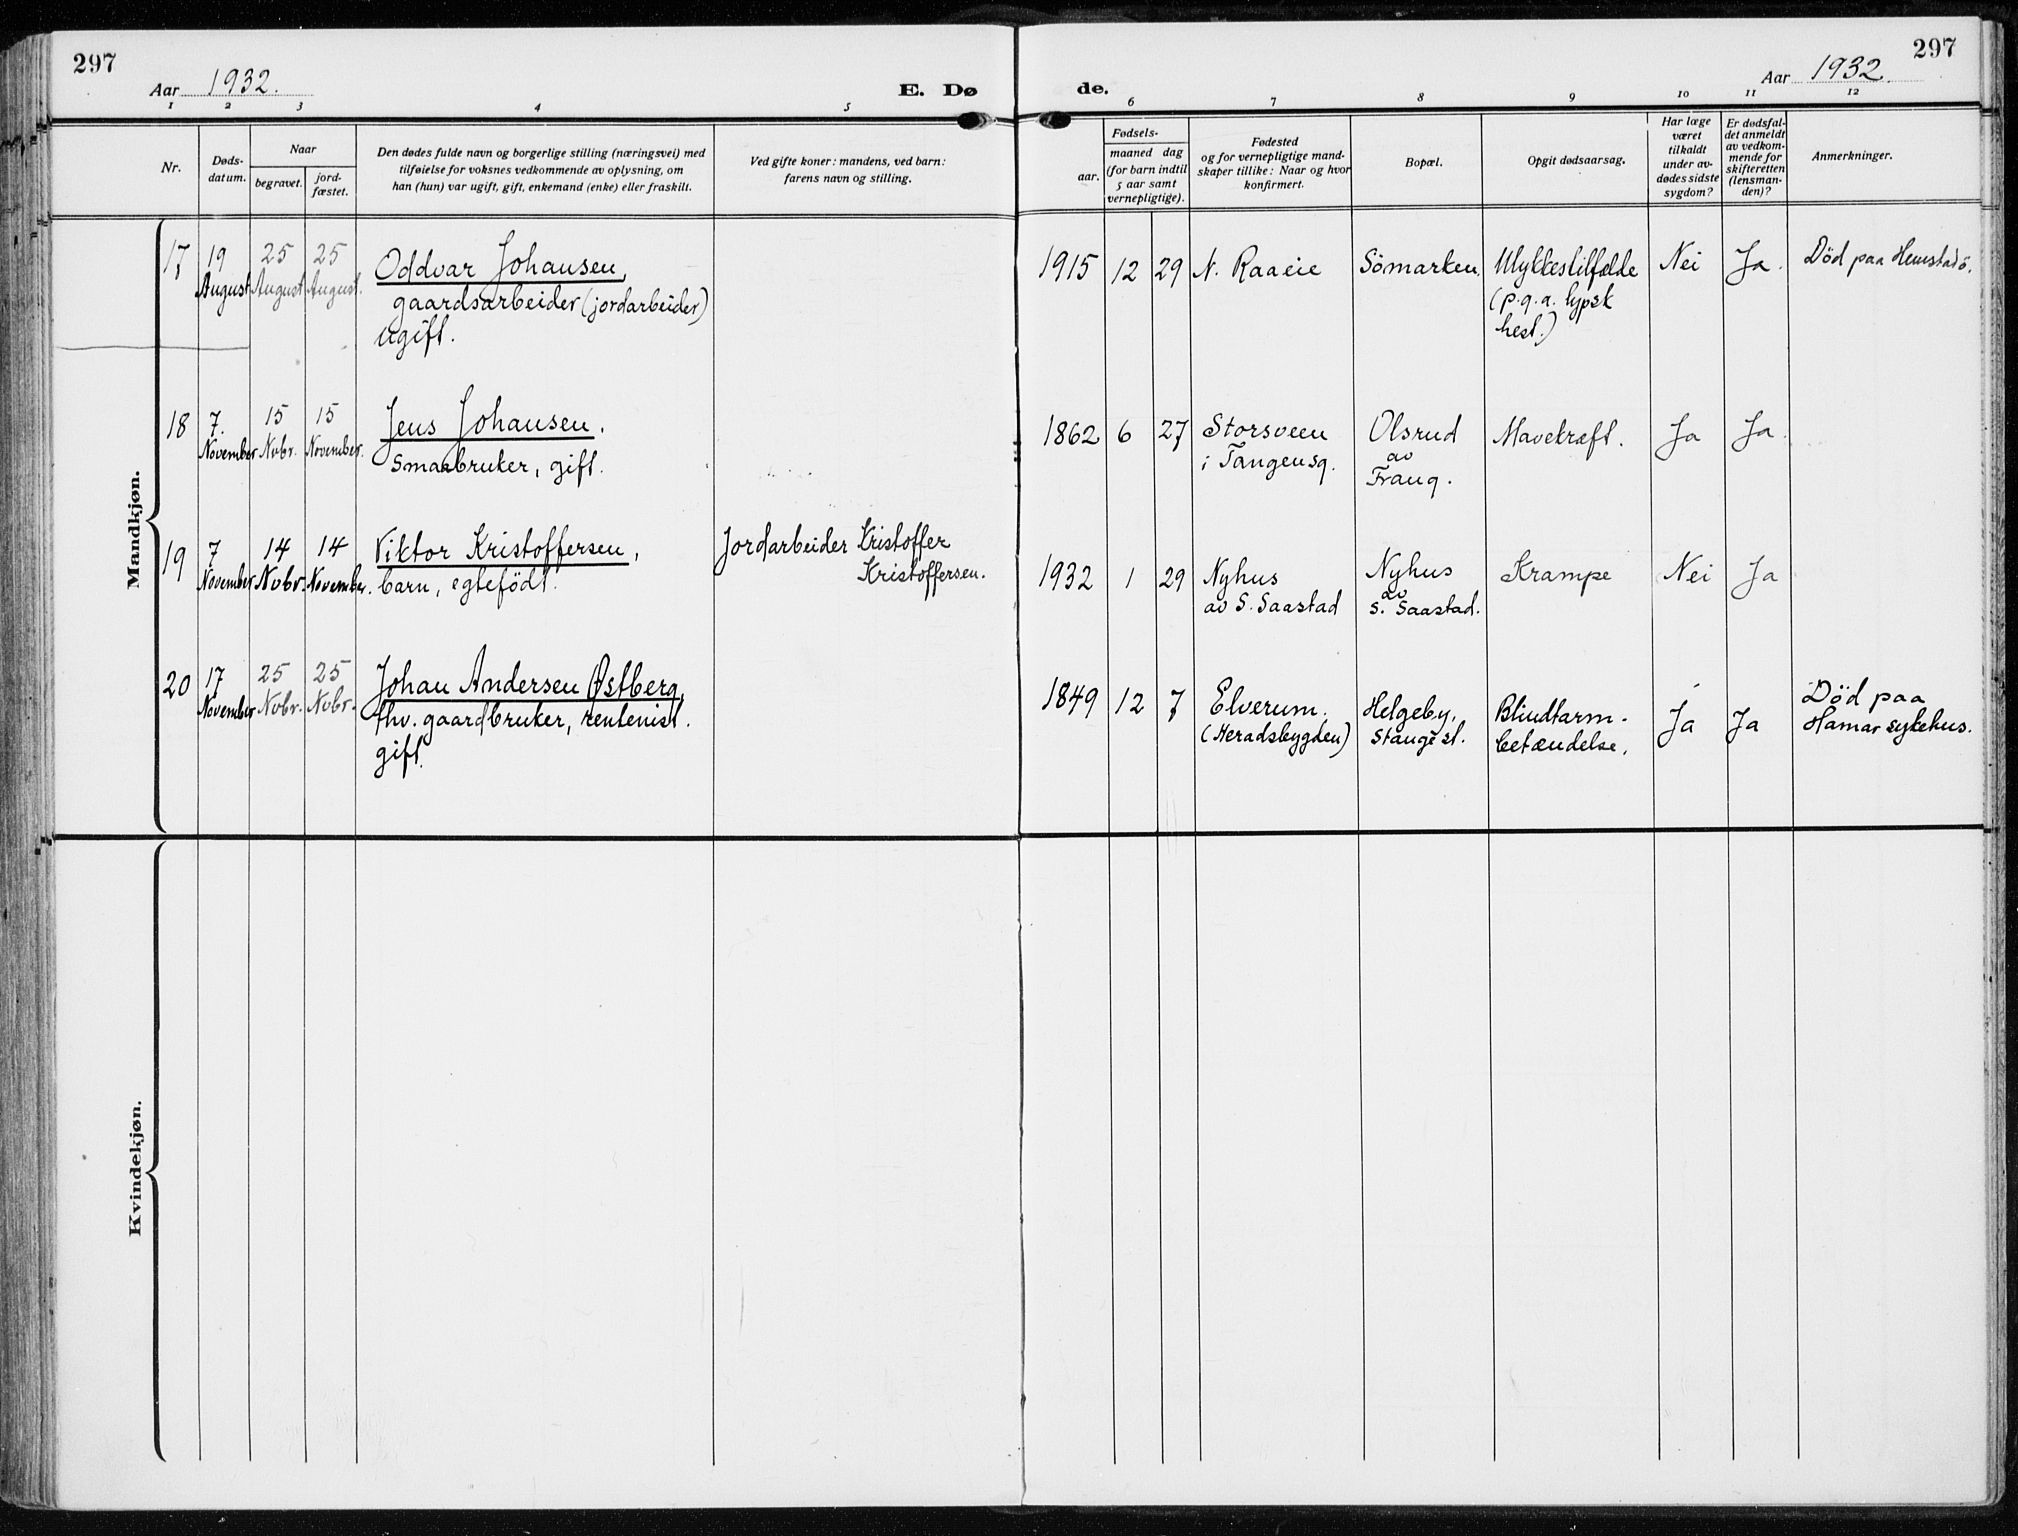 297
Aar 1932.
E. Dø
de.
Aar 1932.
297
1 2 3 4 5 6 7 8 9 10 11 12
Nr.
Døds-
datum.
Naar
begravet.
jord-
fæstet.
Den dødes fulde navn og borgerlige stilling (næringsvei) med
tilføielse for voksnes vedkommende av oplysning, om
han (hun) var ugift, gift, enkemand (enke) eller fraskilt.
Ved gifte koner: mandens, ved barn:
farens navn og stilling.
Fødsels-
aar.
maaned dag
(for barn indtil
5 aar samt
vernepligtige).
Fødested
og for vernepligtige mand-
skaper tillike: Naar og hvor
konfirmert.
Bopæl.
Opgit dødsaarsag.
Har læge
været
tilkaldt
under av-
dødes sidste
sygdom?
Er dødsfal-
det anmeldt
av vedkom-
mende for
skifteretten
(lensman-
den)?
Anmerkninger.
Mandkjøn.
17
19
August
25
August
25
August.
Oddvar Johansen,
gaardsarbeider (jordarbeider)
ugift.
1915 12 29
N. Raaeie
Sömarken.
Ulykkestilfælde
(p.g.a. lypsk
hest.)
Nei
Ja.
Død paa Hemstadö.
18
7.
November
15
Nvbr.
15
November.
Jens Johansen.
Smaabruker, gift.
1862 6 27
Storsveen
i Tangensg.
Olsrud
av
Frang.
Mavekræft.
Ja
Ja.
19
7
November
14
Nvbr.
14
November.
Viktor Kristoffersen,
barn, egtefödt.
Jordarbeider Kristoffer
Kristoffersen.
1932 1 29
Nyhus
av S. Saastad
Nyhus
av
S. Saastad.
Krampe
Nei
Ja
20
17
November
25
Nvbr.
25
Nvbr.
Johan Andersen Østberg,
fhv. gaardbruker, rentenist.
gift.
1849 12 7
Elverum.
(Heradsbygden)
Helgeby,
Stange st.
Blindtarm-
betændelse.
Ja
Ja
Død paa
Hamar sykehus.
Kvindekjøn.